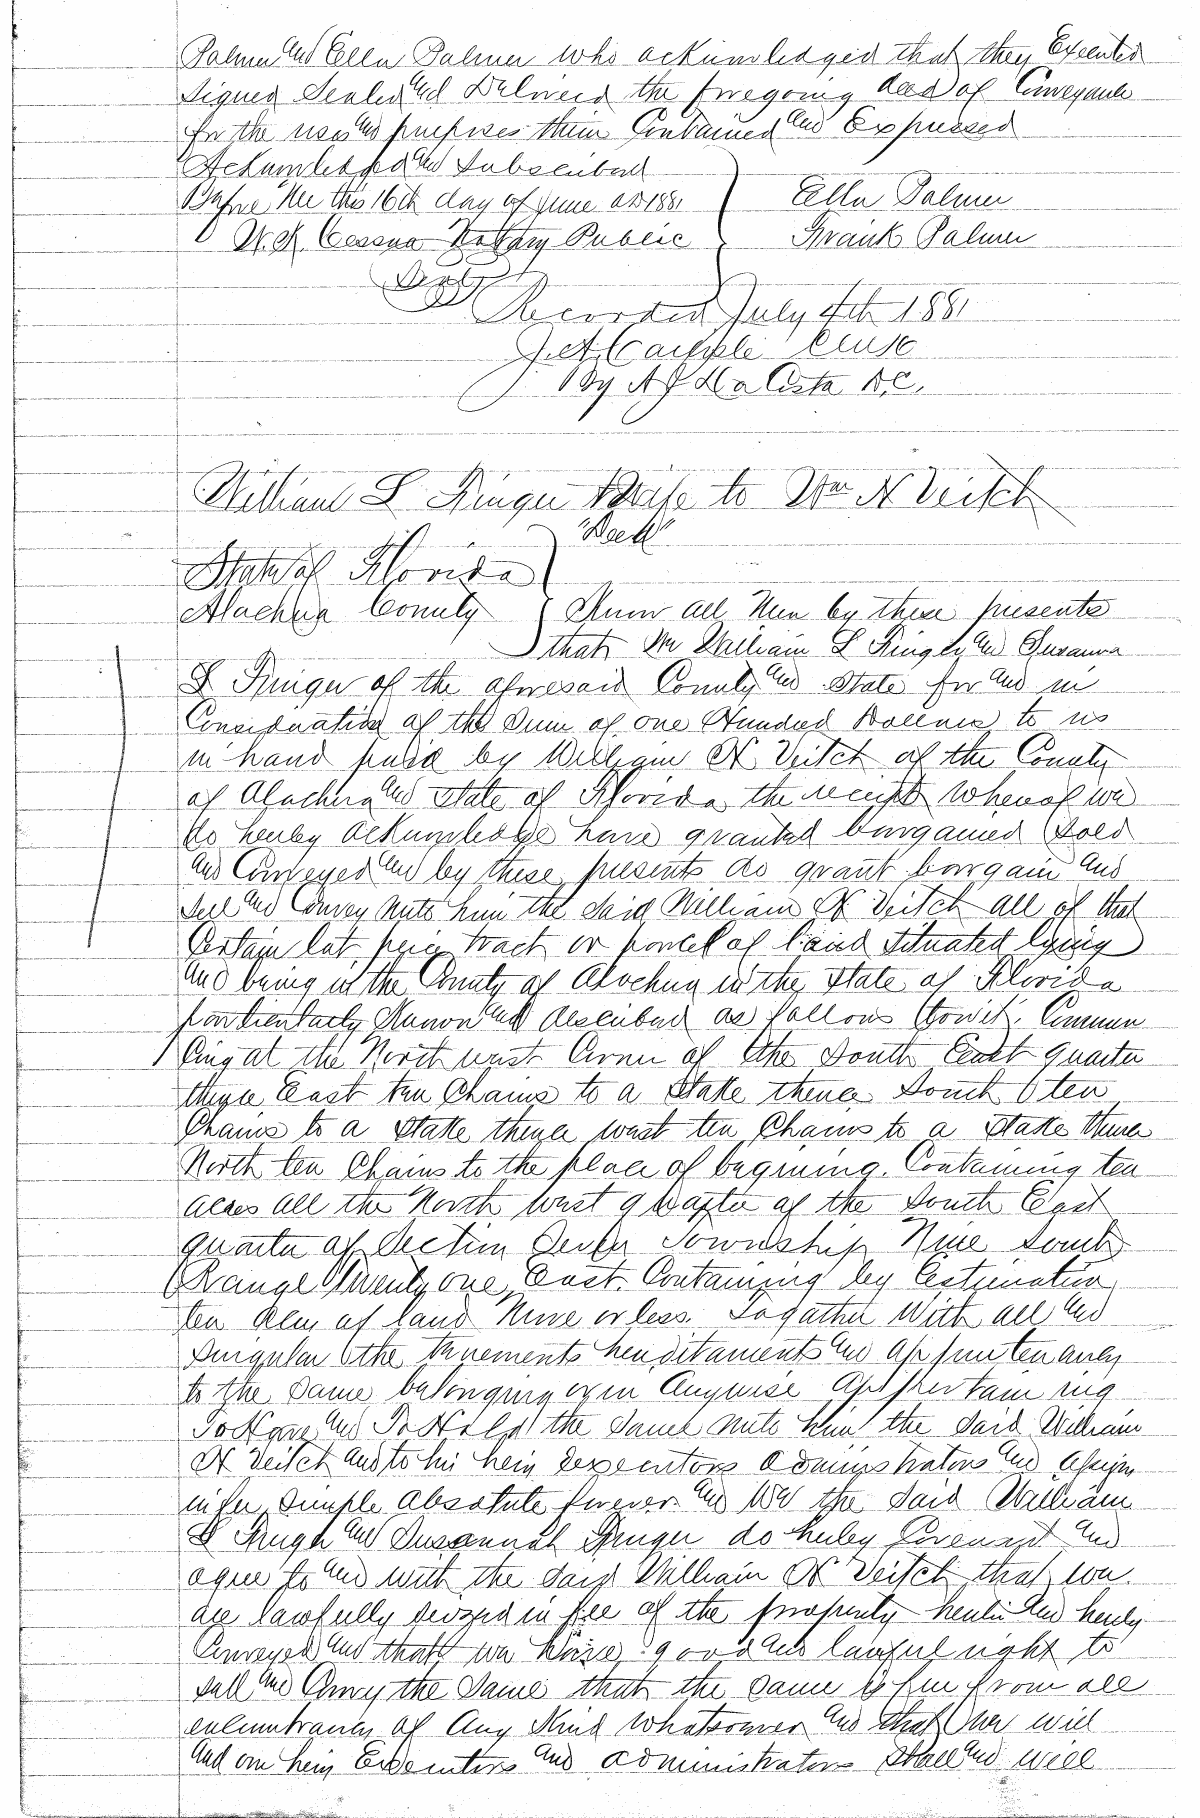 Palmer and Ella Palmer who acknowledged that they Executed
Signed Sealed and Delivered the foregoing deed of Conveyance
for the uses and purposes therein Contained and Expressed
Acknowledged and Subscribed
Before Me this 16th day of June AD 1881
Ella Palmer
W. K. Cessna Notary Public
Frank Palmer
Recorded July 4th 1881
J. A. Carlisle Clerk
By A J Da Costa D.C.
William L Ringer & Wife to Wm N Veitch
"Deed"
State of Florida
Alachua County Know all Men by these presents
that We William L Ringer and Susanna
L Ringer of the aforesaid County and State for and in
Consideration of the Sum of one Hundred Dollars to us
in hand paid by William N Veitch of the County
of Alachua and State of Florida the receipt whereof we
do hereby acknowledge have granted bargained Sold
and Conveyed and by these presents do grant bargain and
sell and Convey unto him the said William N Veitch all of that
Certain lot peice tract or parcel of land situated lying
and being in the County of Alachua in the State of Florida
particularly Known and described as follows (towit). Commen
cing at the North west Corner of the South East quarter
thence East ten Chains to a Stake thence South ten
Chains to a Stake thence west ten Chains to a Stake thence
North ten Chains to the place of begining. Containing ten
acres all the North west quarter of the South East
quarter of Section Township Nine South
Range Twenty one East. Containing by Estimation
ten acres of land More or less. Togather With all and
Singular the tenements hereditaments and appurtenances
to the same belonging or in Anywise Appertaining
To Have and To Hold the same unto him the said William
N Veitch and to his heirs Executors administrators and assigns
in fee simple absolute forever. And We the said William
L Ringer and Susannah Ringer do hereby Covenant and
agree to and with the said William N Veitch that we
are lawfully seized in fee of the property herein and hereby
Conveyed and that we have good and lawful right to
sell and Convey the same that the same is free from all
encumbrances of any Kind whatsoever and that we will
and our heirs Executors and administrators Shall and will